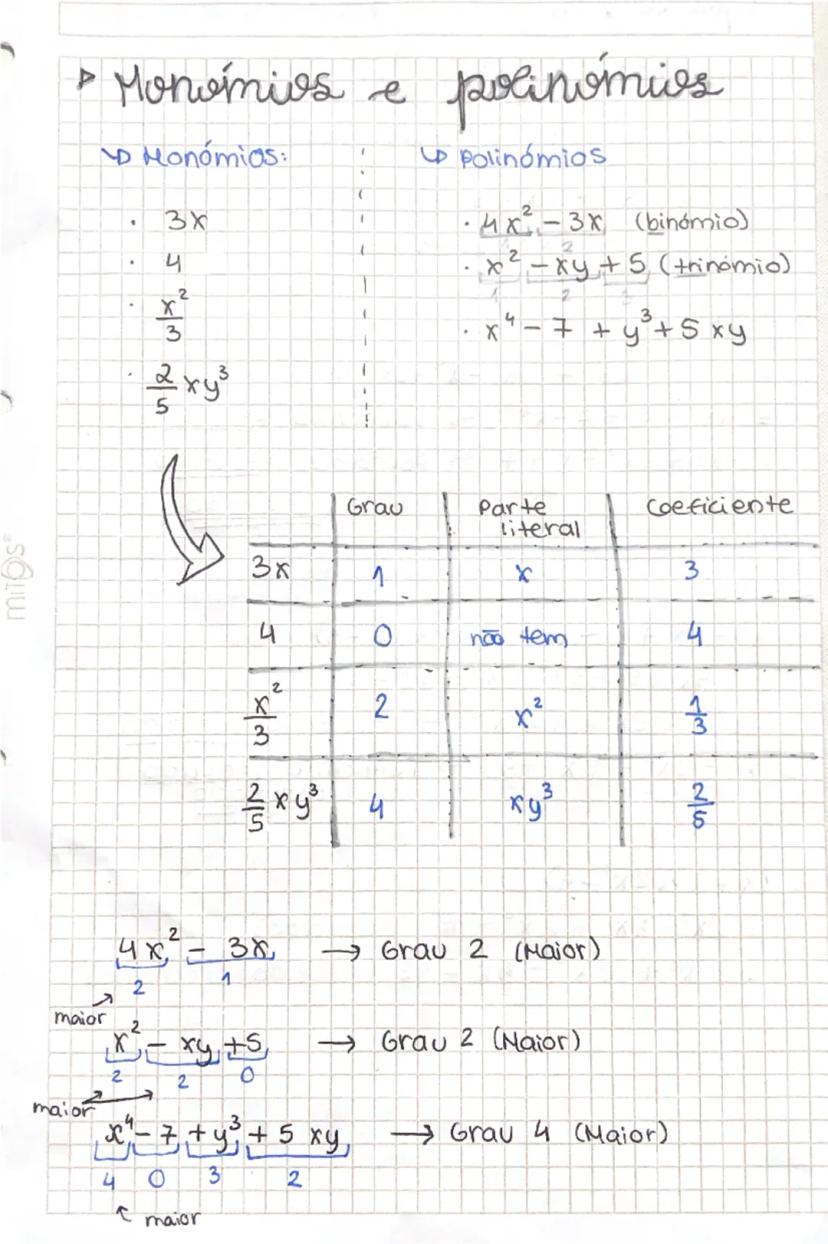 Monómios e polinómios
Monómios:
· 3x
· 4
· x²/3
· 2/5 xy³
Polinómios
· 4x² - 3x (binómio)
2
· x² - xy + 5 (trinómio)
1 2 3
· x⁴ - 7 + y³ + 5xy
Grau Parte literal Coeficiente
3x 1 x 3
4 0 não tem 4
x²/3 2 x² 1/3
2/5 xy³ 4 xy³ 2/5
4x² - 3x → Grau 2 (Maior)
2 1
maior
x² - xy + 5 → Grau 2 (Maior)
2 2 0
maior
x⁴ - 7 + y³ + 5 xy → Grau 4 (Maior)
4 0 3 2
maior
mitos